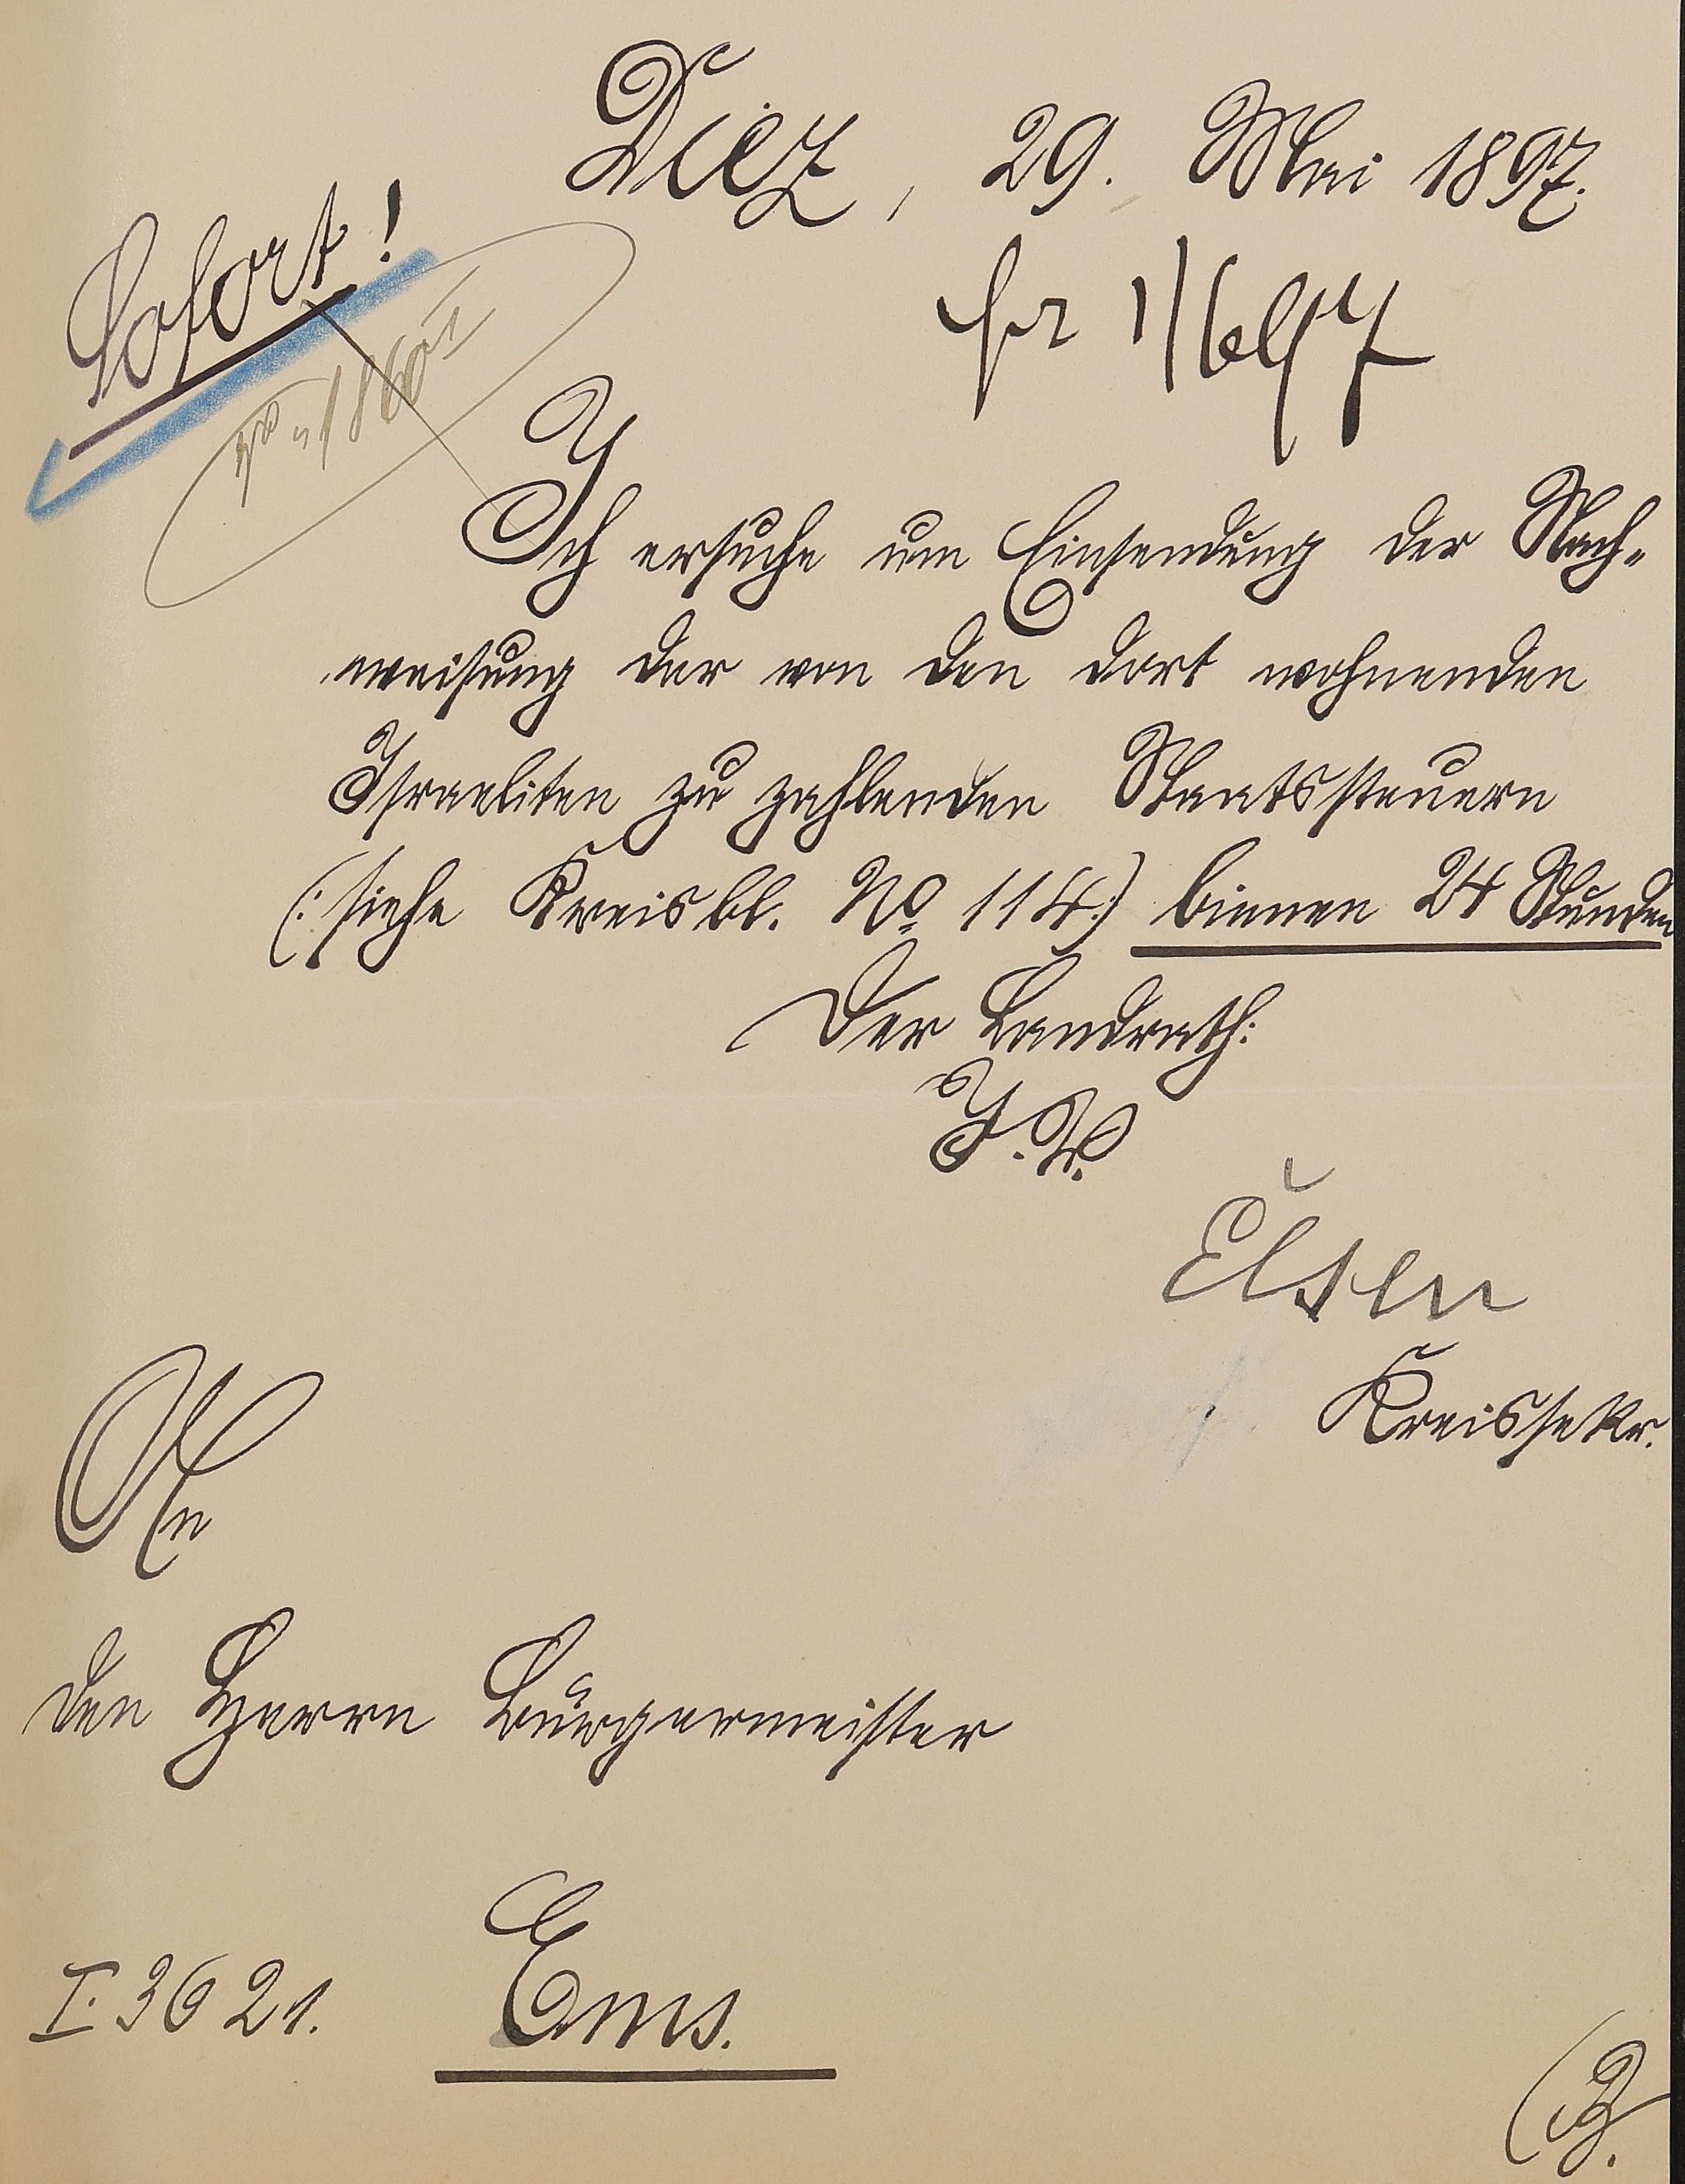 Diez, 29. Mai 1897.
Sofort!
pr 1/6 97
Ich ersuche um Einsendung der Nach-
weisung der von den dort wohnenden
Israeliten zu zahlenden Staatssteuern
(: siehe Kreisbl. No 114 :) binnen 24 Stunden
Der Landrath:
I. V.
Elsen
Kreissekr.
An
den Herrn Bürgermeister
I. 3621. Ems.